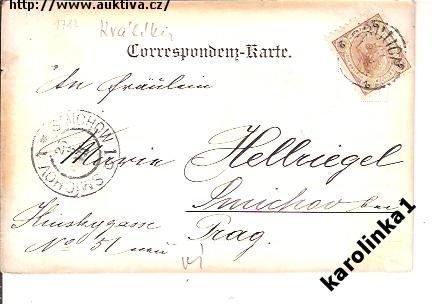 http://www.auktiva.cz/
1782
Králíky
Correspondenz-Karte.
An Fräulein
Marie Hellriegel
Smichov bei
Prag.
Kinskygasse
No 51 neu
SMICHOW 1
SMÍCHOV 1
karolinka1